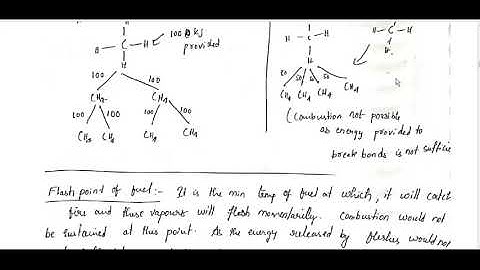 H
- C - H
H
100 kJ
provided
100
100
CH4
CH4
100
100
100
100
CH4
CH4
CH4
CH4
- H - C - H
H
50
50
50
CH4
CH4
CH4
CH4
(Combustion not possible
as energy provided to
break bonds is not suffice
Flash point of fuel:- It is the min temp of fuel at which, it will catch
fire and those vapours will flash momentarily. Combustion would not
be sustained at this point. As the energy released by flashes would not